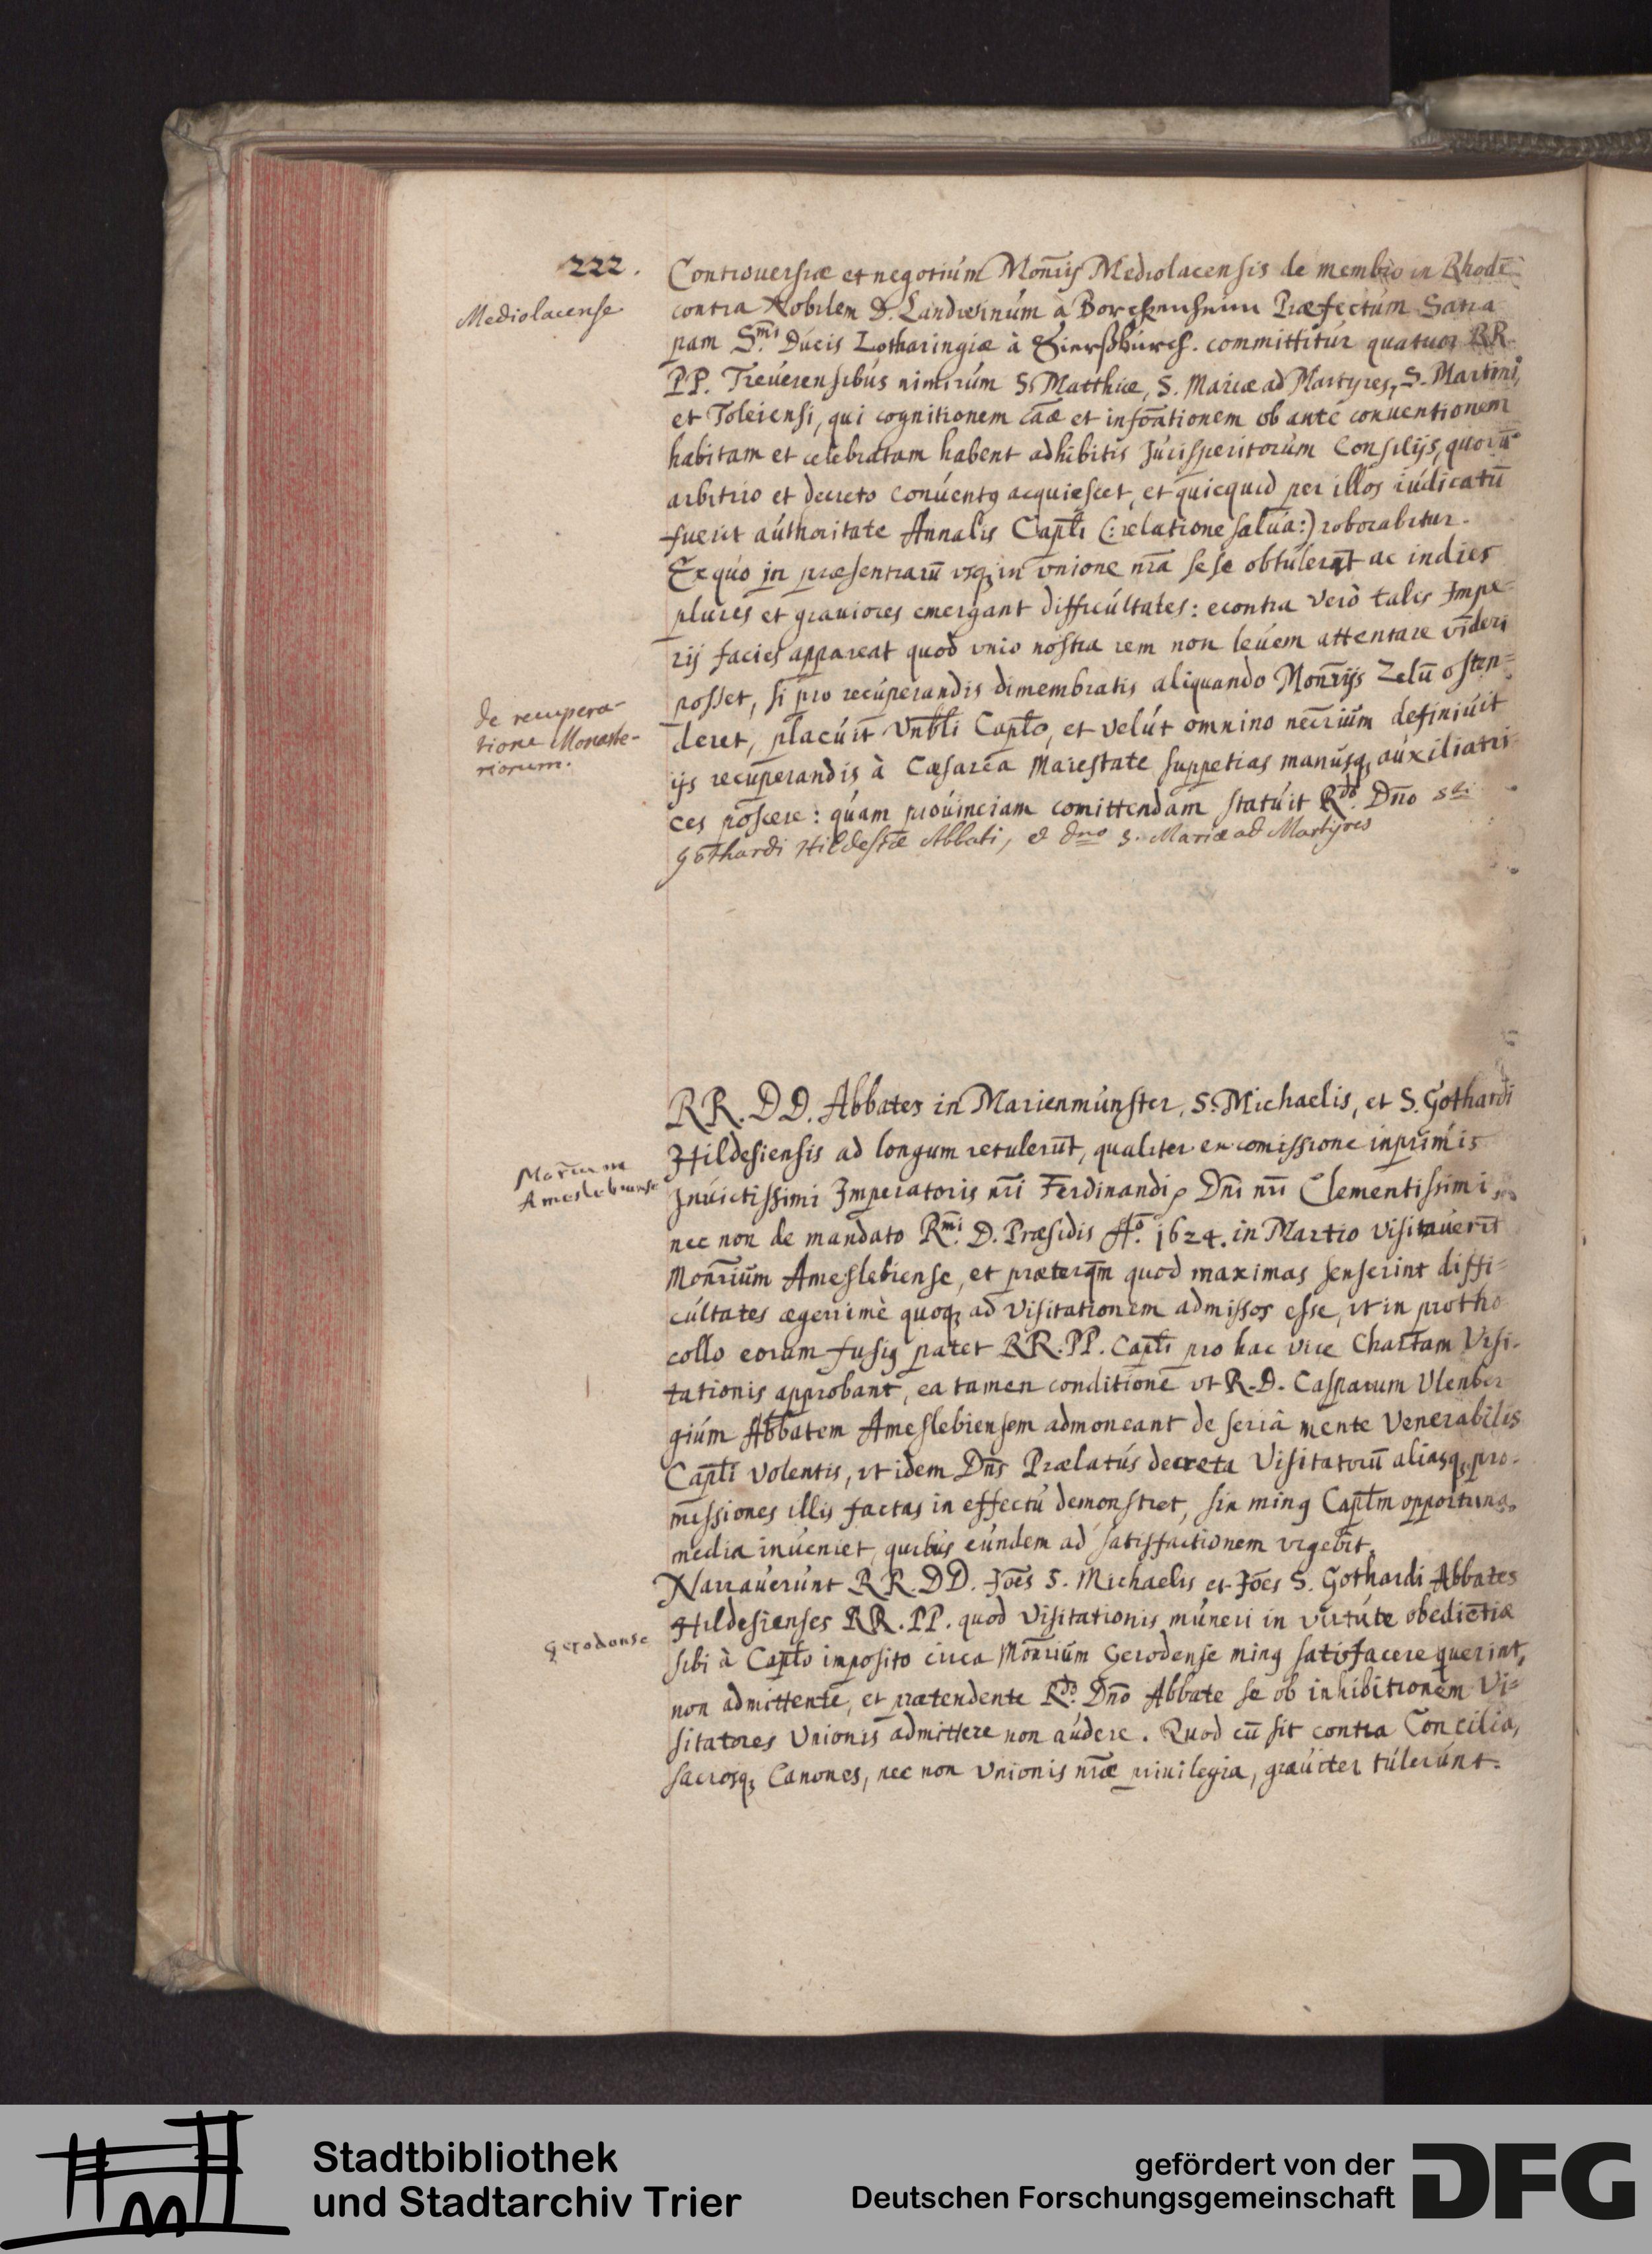 222.
Mediolacense
Controuersiæ et negotium Monrÿ Mediolacensis de membro in Rhodē
contra Nobilem D. Landwinum à Borckenheim Præfectum Satra
pam S.mi Ducis Lotharingiæ à Siersßburch. committitur quatuor RR
PP. Treuerensibus nimirum S. Matthiæ, S. Mariæ ad Martyres, S. Martini,
et Toleiensi, qui cognitionem cāæ et infoātionem ob ante conuentionem
habitam et celebratam habent adhibitis Jurisperitorum Consilijs, quorū
arbitrio et decreto conuentq acquiescet, et quicquid per illos iudicatū
fuerit authoritate Annalis Capli (:relatione salua:) roborabitur.
Ex quo in præsentiarū vsq; in vnione nrā sese obtulerūt ac indies
plures et grauiores emergant difficultates: econtra verò talis Impe=
rij facies appareat quod vnio nostra rem non leuem attentare videri
posset, si pro recuperandis dimembratis aliquando Monrijs Zelū osten=
deret, placuit Vnbli Caplo, et velut omnino necrium definiuit
de recupera-
tione Monaste-
riorum.
ijs recuperandis à Cæsarea Maiestate suppetias manusq; auxiliatri
ces poscere: quam prouinciam comittendam statuit Rdo. Dno Sti
Gothardi Hildesiæ Abbati, & dno S. Mariæ ad Martÿres
RR. DD. Abbates in Marienmunster, S. Michaelis, et S. Gothardi
Hildesiensis ad longum retulerūt, qualiter ex comissione inprimis
Monrium
Ameslebiense
Inuictissimi Imperatoris nri Ferdinandi, Dni nri Clementissimi,
nec non de mandato Rmi. D. Præsidis Ao. 1624. in Martio visitauerīt
Monrium Ameslebiense, et præterqm quod maximas senserint diffi=
cultates ægerrimè quoq; ad visitationem admissos esse, vt in protho
collo eorum fusiq patet RR. PP. Capli pro hac vice Chartam Visi-
tationis approbant, ea tamen conditione vt R. D. Casparum Vlenber
gium Abbatem Ameslebiensem admoneant de seriâ mente Venerabilis
Capli volentis, vt idem Dns Prælatus decreta Visitatorū aliasq; pro-
missiones illis factas in effectu demonstret, sin minq Caplm opportuna
media inueniet, quibus eundem ad satisfactionem vrgebit.
Narrauerunt RR. DD. Joēs S. Michaelis et Joēs S. Gothardi Abbates
Hildesienses RR. PP. quod Visitationis muneri in virtute obediētiæ
Gerodense
sibi à Caplo imposito circa Monrium Gerodense minq satisfacere quierint,
non admittente, et prætendente Rdo. Dno Abbate se ob inhibitionem Vi=
sitatores Vnionis admittere non audere. Quod cū sit contra Concilia,
sacrosq; Canones, nec non Vnionis nræ priuilegia, grauiter tulerunt.
Stadtbibliothek
und Stadtarchiv Trier
gefördert von der
Deutschen Forschungsgemeinschaft
DFG